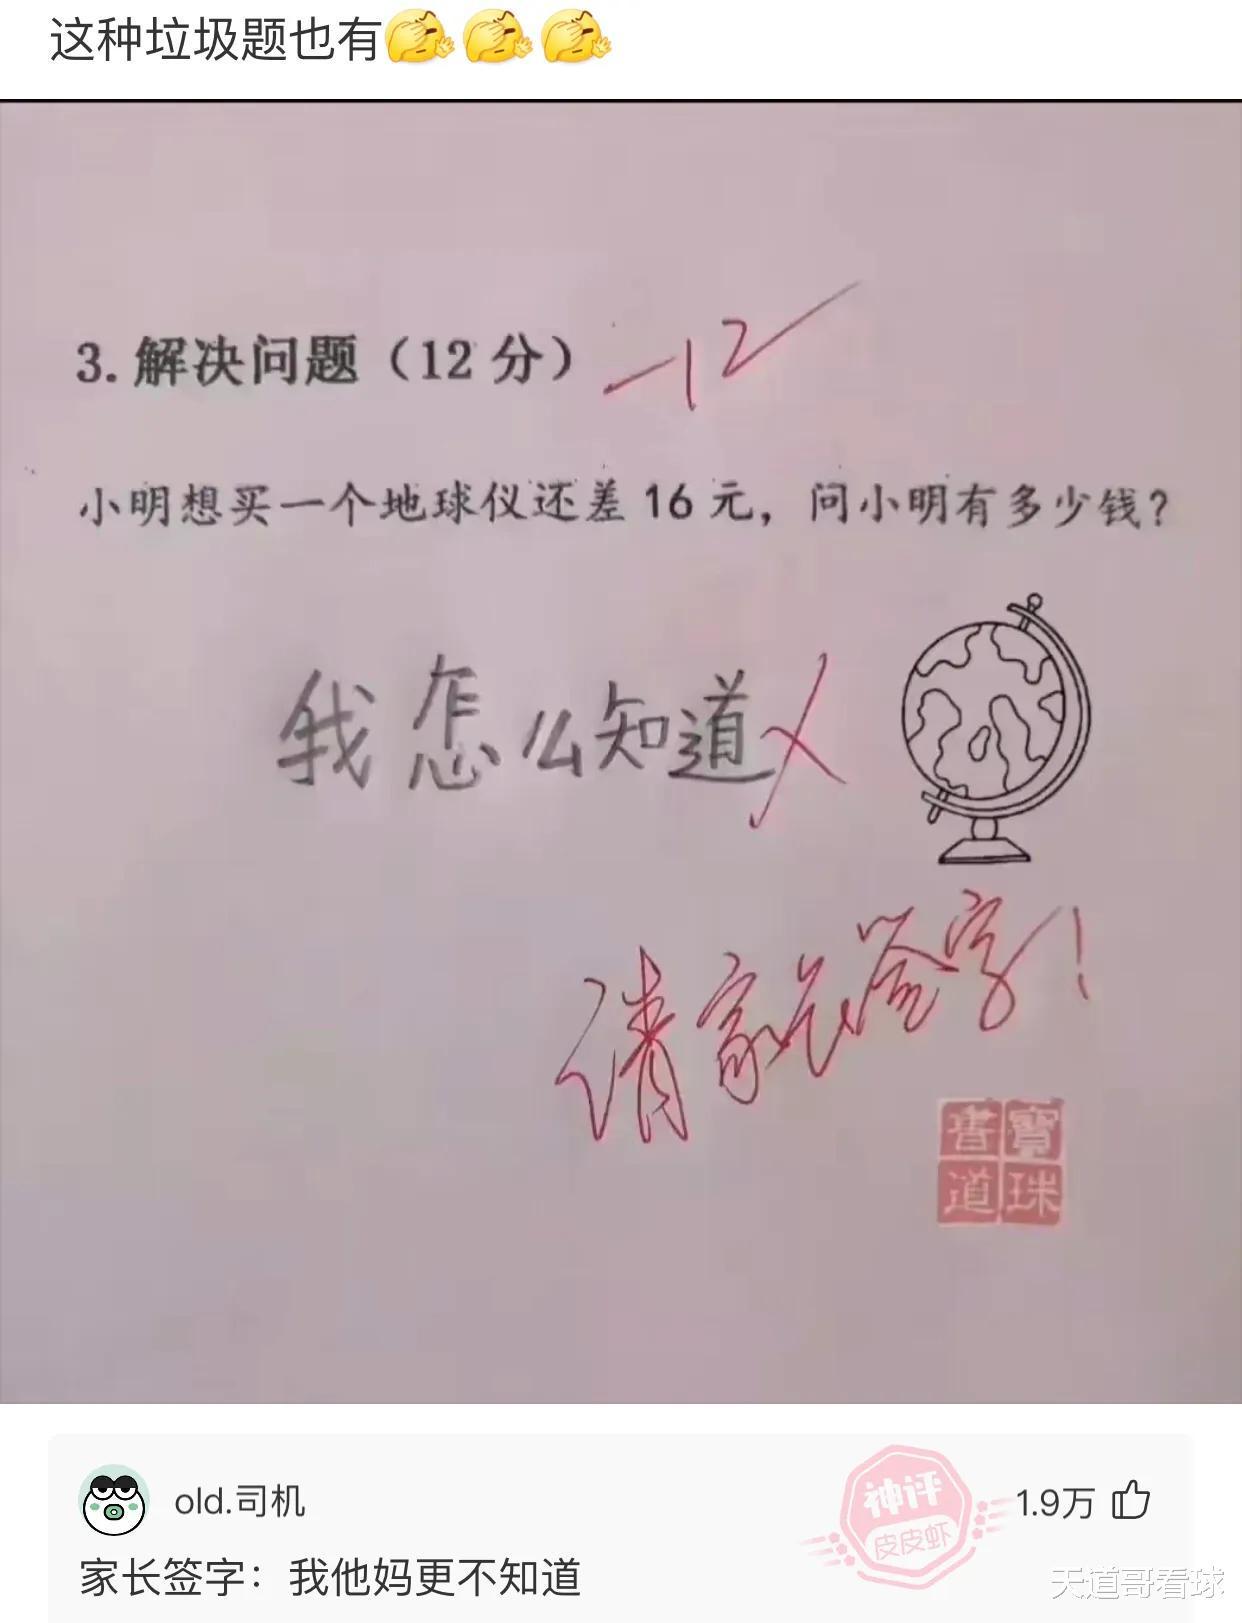 这种垃圾题也有
3. 解决问题（12 分）
-12
小明想买一个地球仪还差 16 元，问小明有多少钱？
我怎么知道
请家长签字！
書寶
道珠
old.司机
神评
皮皮虾
1.9万
家长签字：我他妈更不知道
天道哥看球